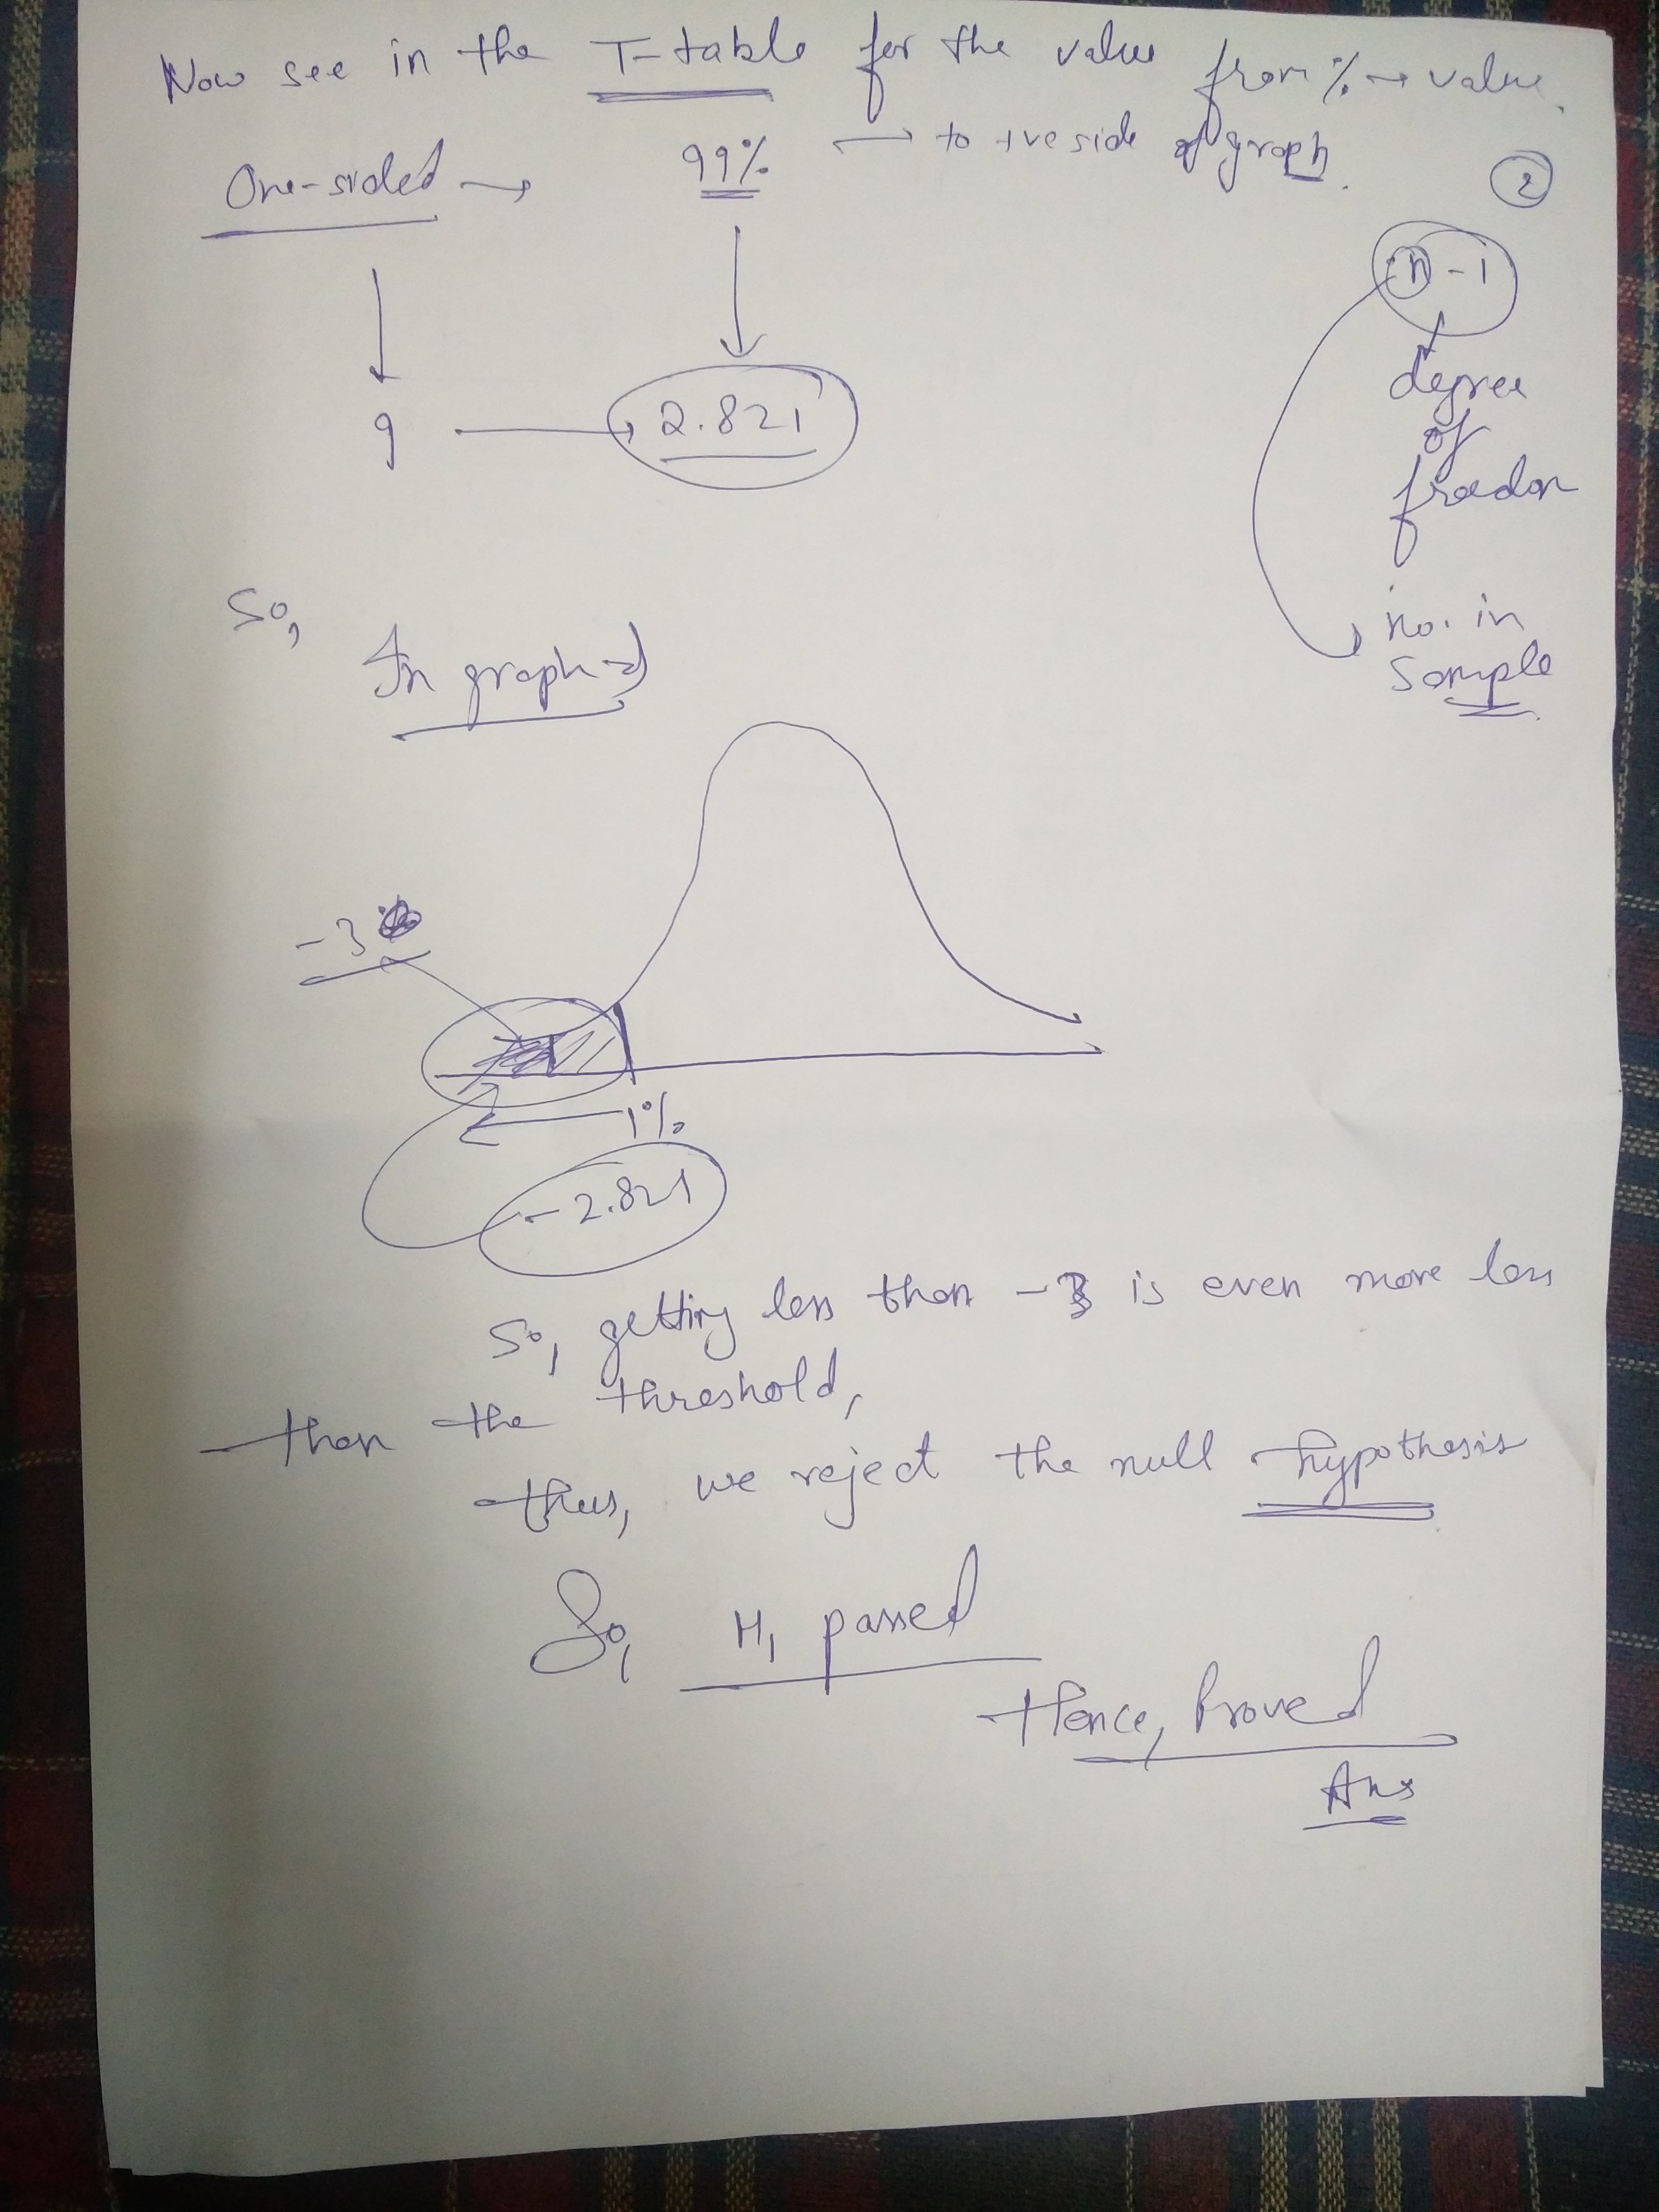 Now see in the T-table for the value from % → value.
One-sided → 99% → to +ve side of graph.
②
n-1
9 → 2.821
degree
of
freedom
no. in
sample
So,
In graph →
-3
1%
-2.821
So, getting less than -3 is even more less
than the threshold,
thus, we reject the null hypothesis
So, H₁ passed
Hence, Proved
Ans